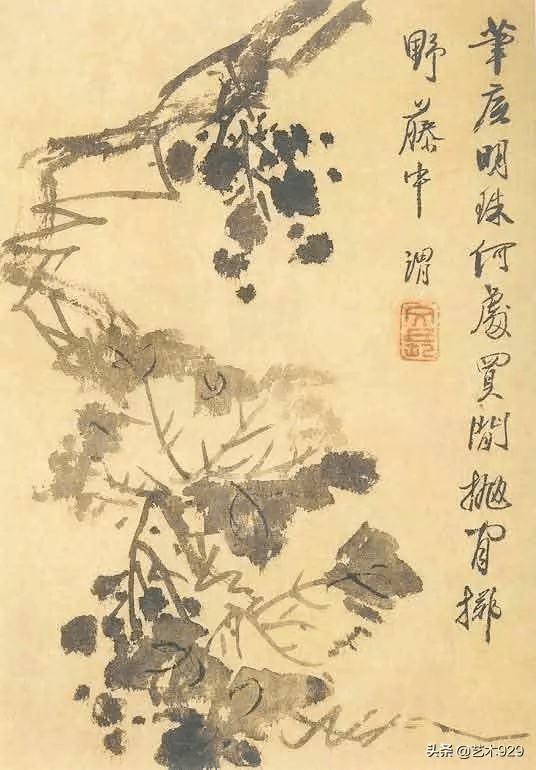 筆底明珠何處買閒拋閒擲
野藤中 渭
文長
头条 @艺术929